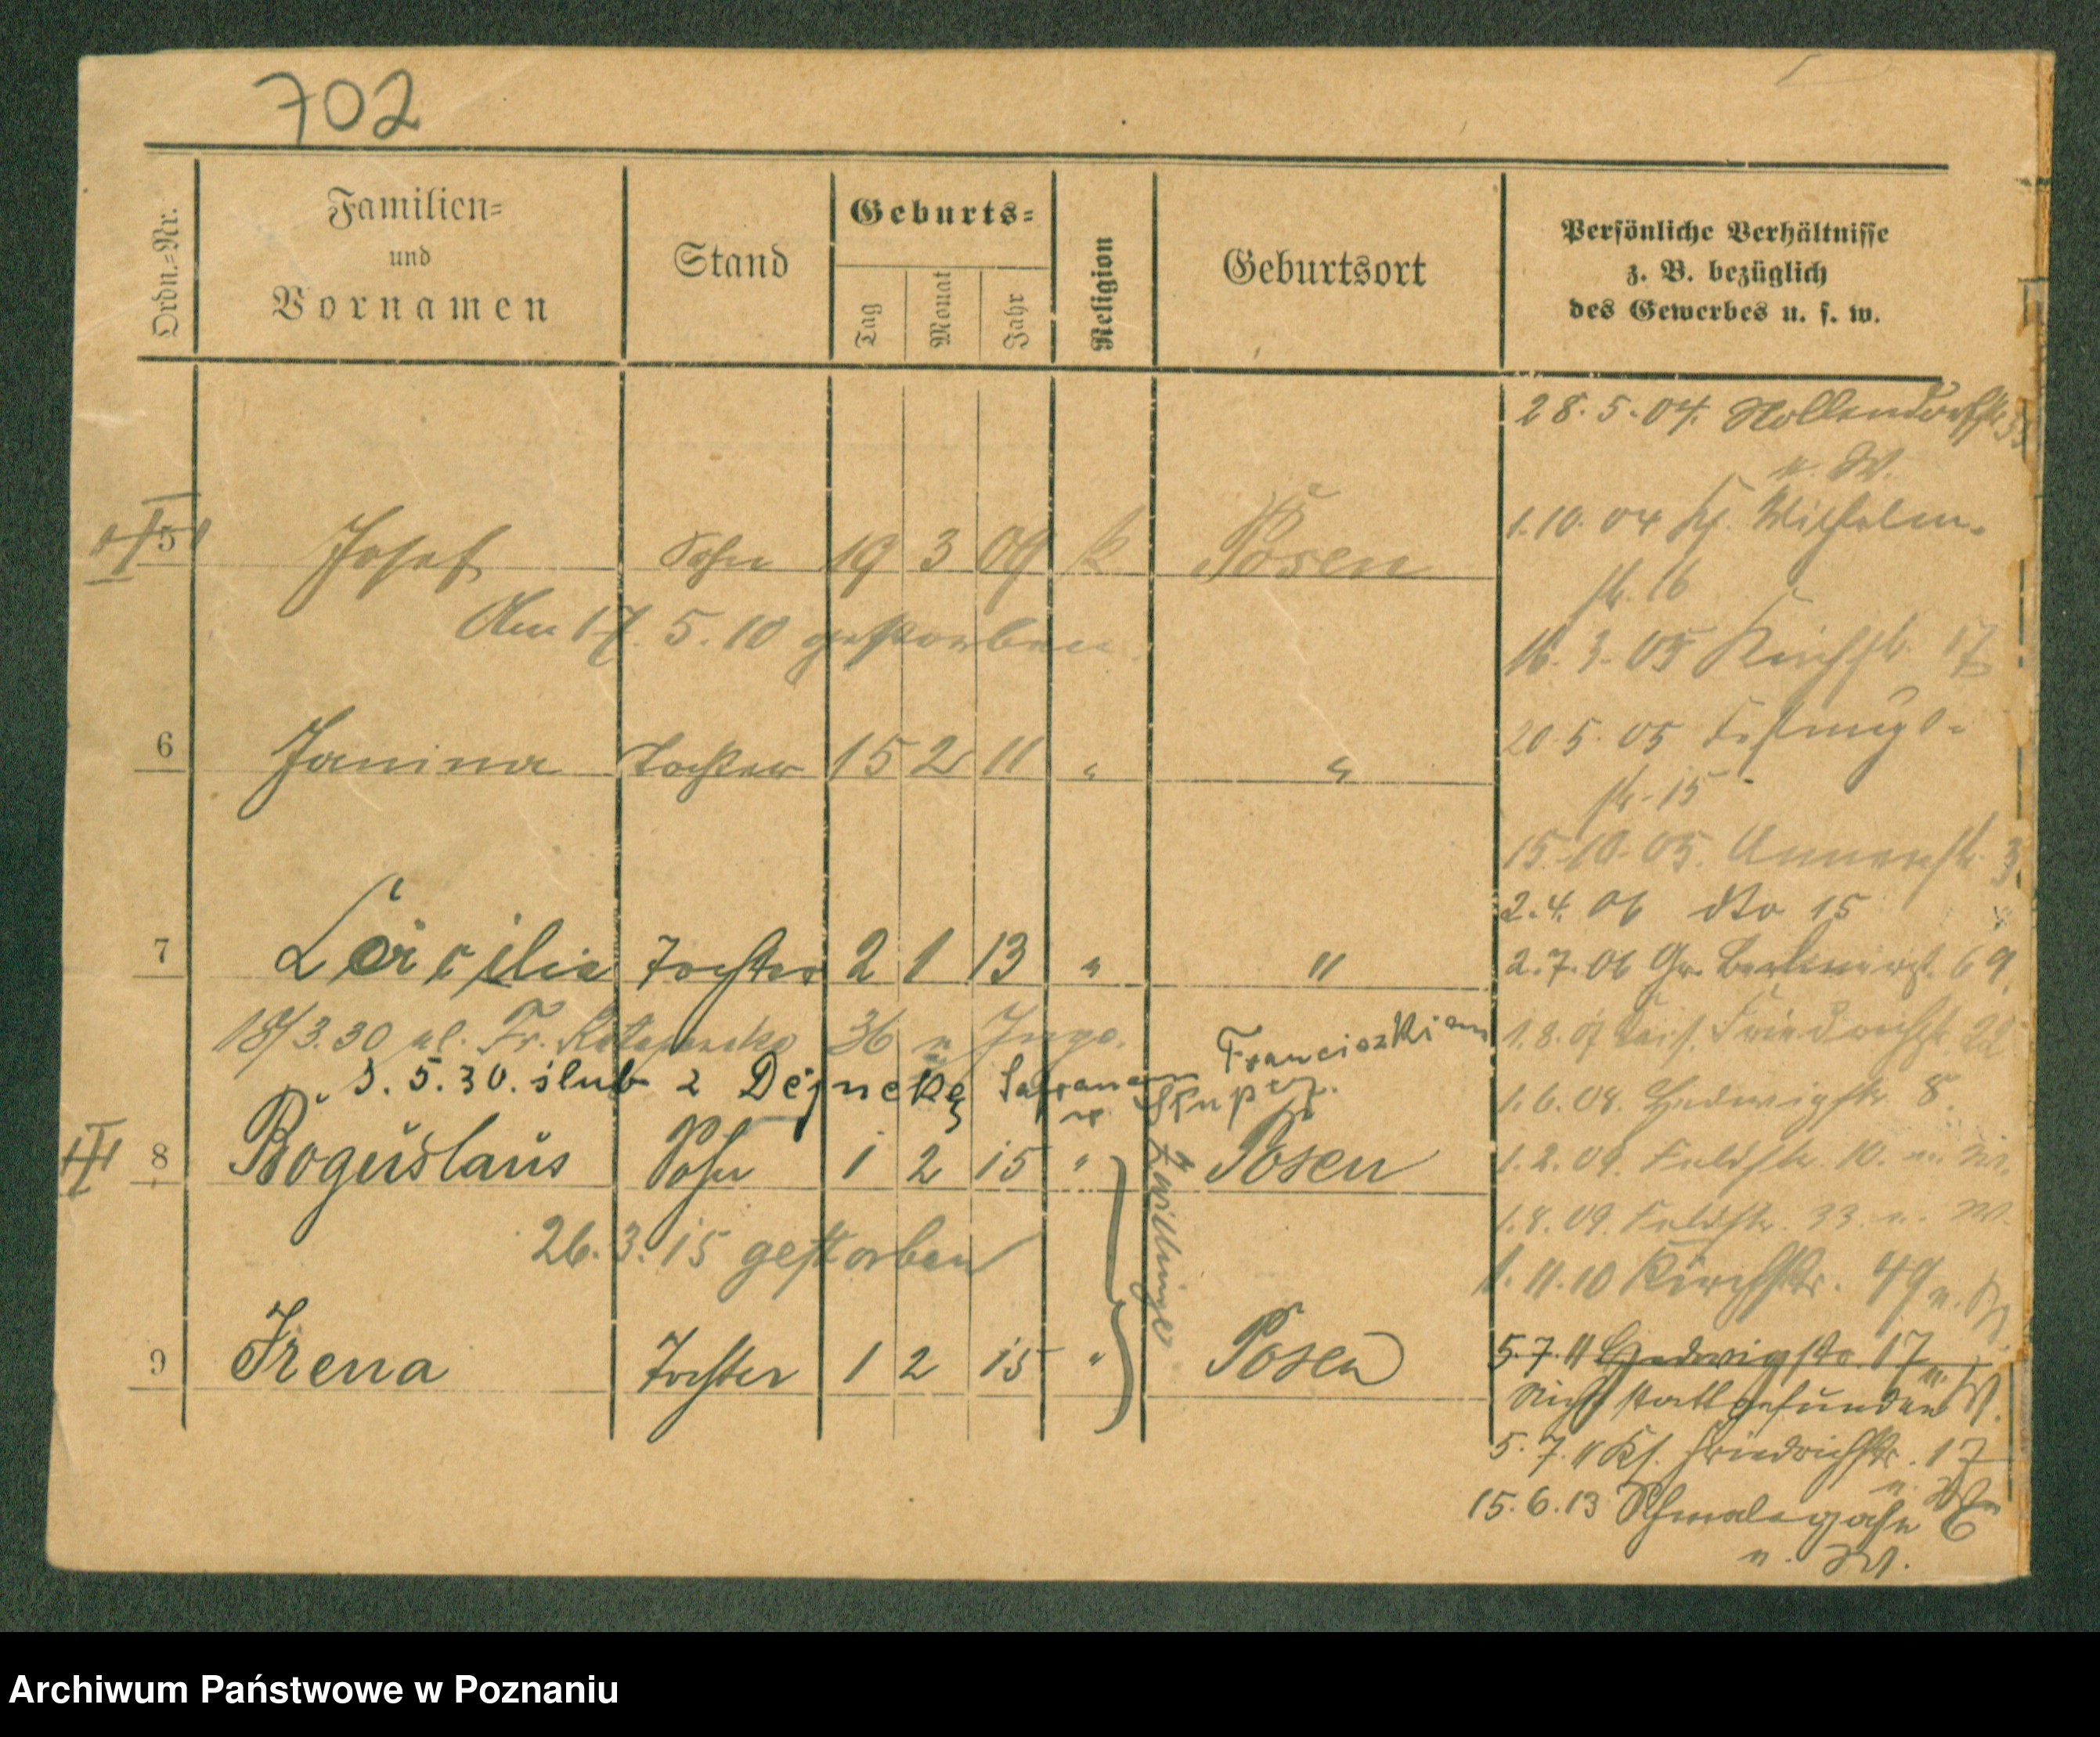 702
Ordn.=Nr.
Familien=
und
Vornamen
Stand
Geburts=
Tag
Monat
Jahr
Religion
Geburtsort
Persönliche Verhältnisse
z. B. bezüglich
des Gewerbes u. s. w.
5 Josef Sohn 19 3 09 k Posen
Am 17. 5. 10 gestorben
6 Janina Tochter 15 2 11 " "
7 Cäcilie Tochter 2 1 13 " "
18/3.30 ul. Fr. Ratajczaka 36 u
3. 5. 30. ślub z Dejneką Franciszkiem
8 Boguslaus Sohn 1 2 15 " Posen
26. 3. 15 gestorben
Zwillinge
9 Irena Tochter 1 2 15 " Posen
28. 5. 04. Nollendorfstr. 33
u. W.
1. 10. 04 Kf. Wilhelm-
str. 16
16. 3. 05 Kirchstr. 17
20 5. 05 Festungs-
str. 15
15. 10. 05. Annenstr. 3.
2. 4. 06 dto 15
2. 7. 06 Gr. Berlinerst. 69.
1. 8. 07 Friedrichstr.
1. 6. 08. Hedwigstr. 8.
1. 2. 09. Feldstr. 10. u. W.
1. 8. 09. Feldstr. 33. u. W.
1. 11. 10 Kirchstr. 49 u. W.
5. 7. 11 Hedwigstr. 17 u. W.
Nicht stattgefunden
5. 7. 11 Kf. Friedrichstr. 17
u. W.
15. 6. 13 Schmalegasse 6
u. W.
Archiwum Państwowe w Poznaniu